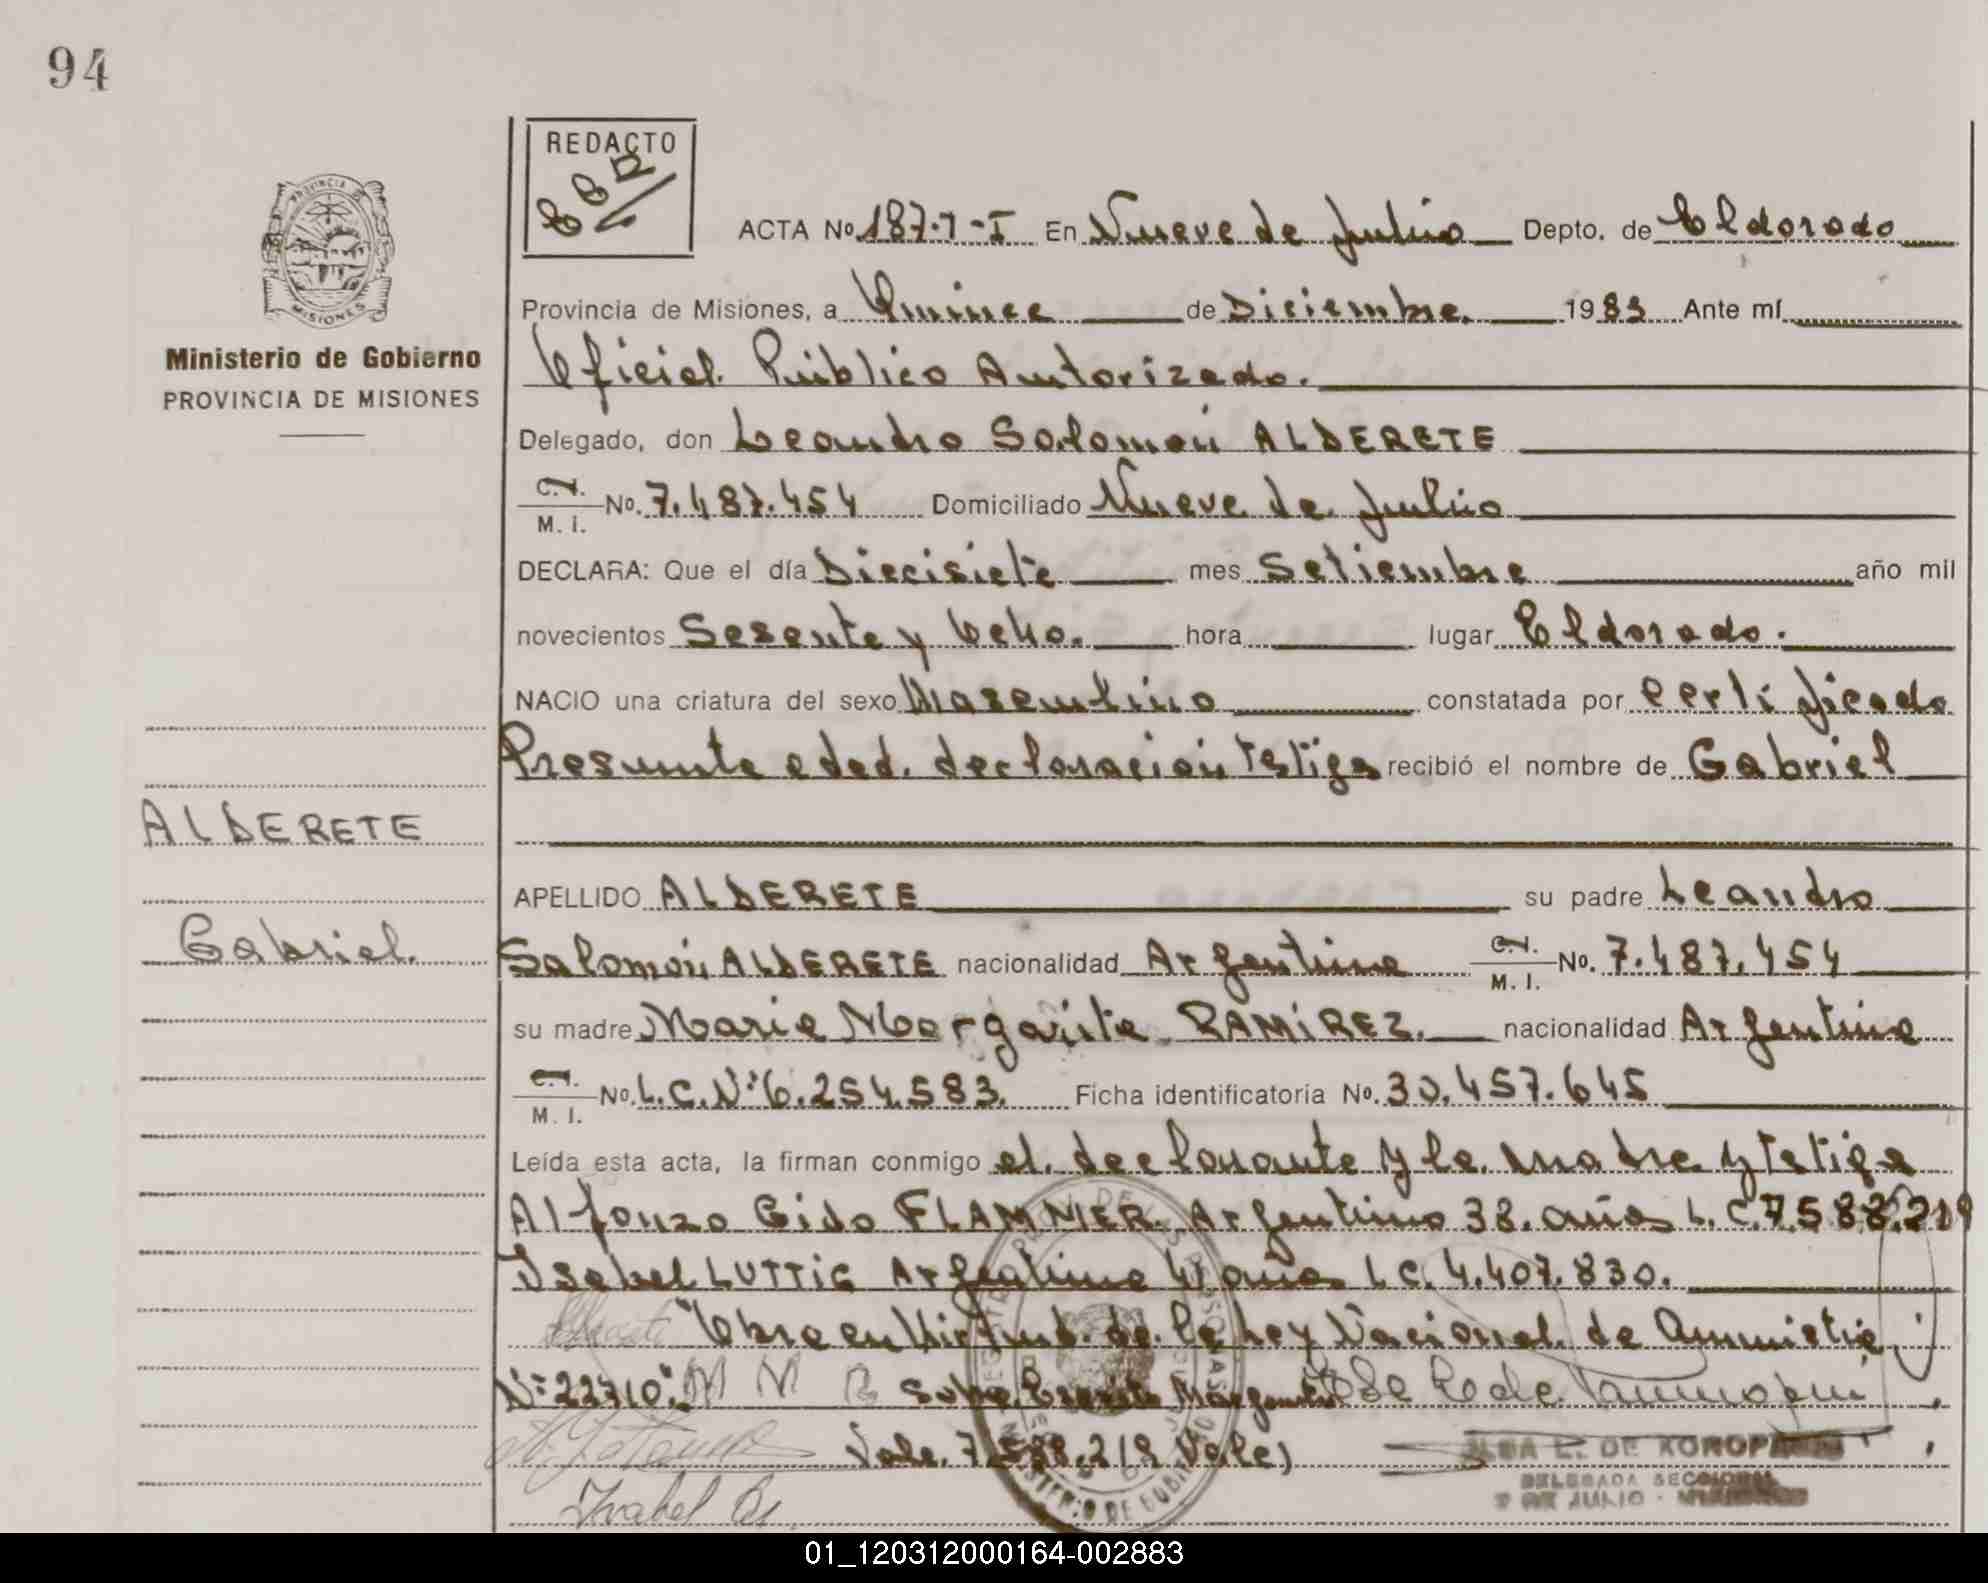 94
REDACTO
ACTA No. 187.T-I En Nueve de Julio Depto. de Eldorado
PROVINCIA DE
MISIONES
Provincia de Misiones, a Quince de Diciembre. 1983 Ante mí
Ministerio de Gobierno
PROVINCIA DE MISIONES
Oficial Público Autorizado.
Delegado, don Leandro Salomón ALDERETE
C.I. M. I. No. 7.487.454 Domiciliado Nueve de Julio
DECLARA: Que el día Diecisiete mes Setiembre año mil
novecientos Sesenta y Ocho. hora lugar Eldorado.
NACIO una criatura del sexo Masculino constatada por Certificado
Presunta edad. declaración testigo recibió el nombre de Gabriel
ALDERETE
APELLIDO ALDERETE su padre Leandro
Gabriel.
Salomón ALDERETE nacionalidad Argentina C.I. M. I. No. 7.487.454
su madre Maria Margarita RAMIREZ. nacionalidad Argentina
C.I. M. I. No. L.C.Nº 6.254.583. Ficha identificatoria No. 30.457.645
Leída esta acta, la firman conmigo el declarante y la madre y testigo
Alfonzo Gido FLAMMER Argentino 38. años L.C. 7.588.219
Isabel LUTTIG Argentina 41 años L.C. 4.407.830.
"Obra en Virtud de la Ley Nacional de Amnistia
Nº 22710." M M R
Vale. 7.588.219 Vale)
ALBA L. DE KOROPESKI
DELEGADA SECCIONAL
9 DE JULIO - MISIONES
Isabel
MINISTERIO DE GOBIERNO
01_120312000164-002883